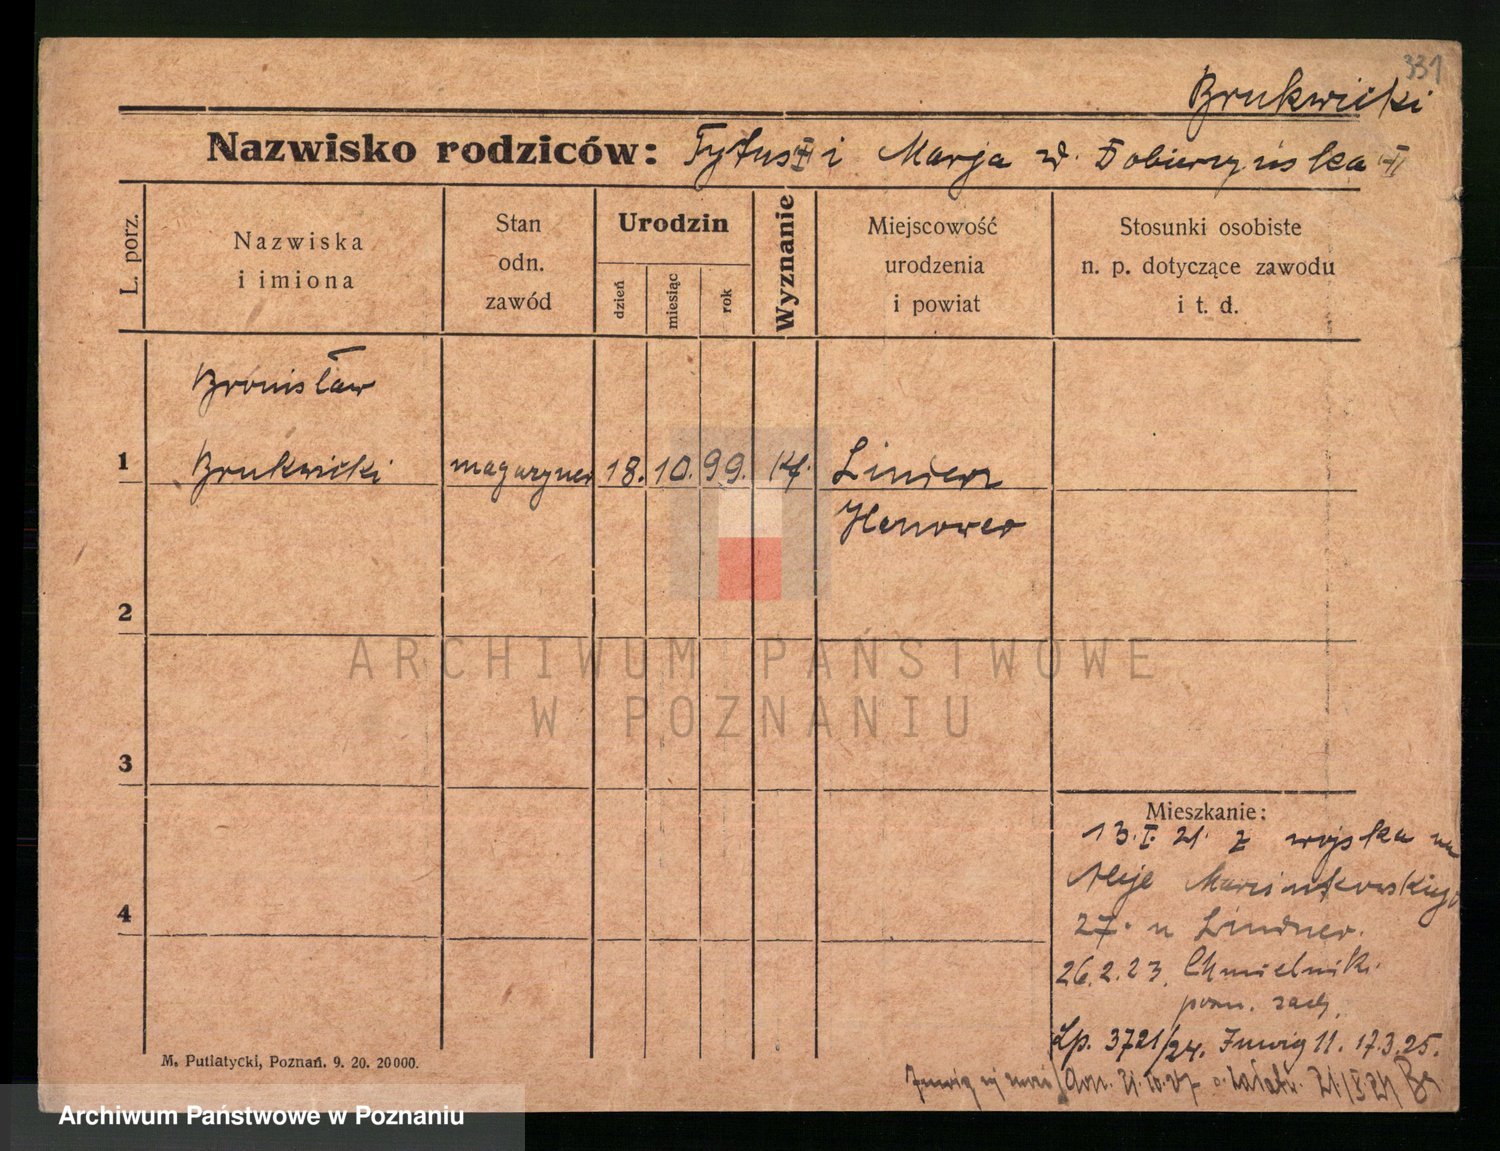 331
Brukwicki
Nazwisko rodziców: Tytus i Marja z d. Dobierzyńska
L. porz.
Nazwiska
i imiona
Stan
odn.
zawód
Urodzin
dzień
miesiąc
rok
Wyznanie
Miejscowość
urodzenia
i powiat
Stosunki osobiste
n. p. dotyczące zawodu
i t. d.
Bronisław
1 Brukwicki magazyner 18. 10. 99. Kf. Linden
Hanower
2
3
4
Mieszkanie:
13. I. 21. z wojska na
Aleje Marcinkowskiego
27. u Lindner.
26.2.23. Chmielnik.
pozn. zach.
Lp. 3721/24. 11. 17.3.25.
M. Putiatycki, Poznań. 9. 20. 20 000.
ARCHIWUM PAŃSTWOWE
W POZNANIU
Archiwum Państwowe w Poznaniu